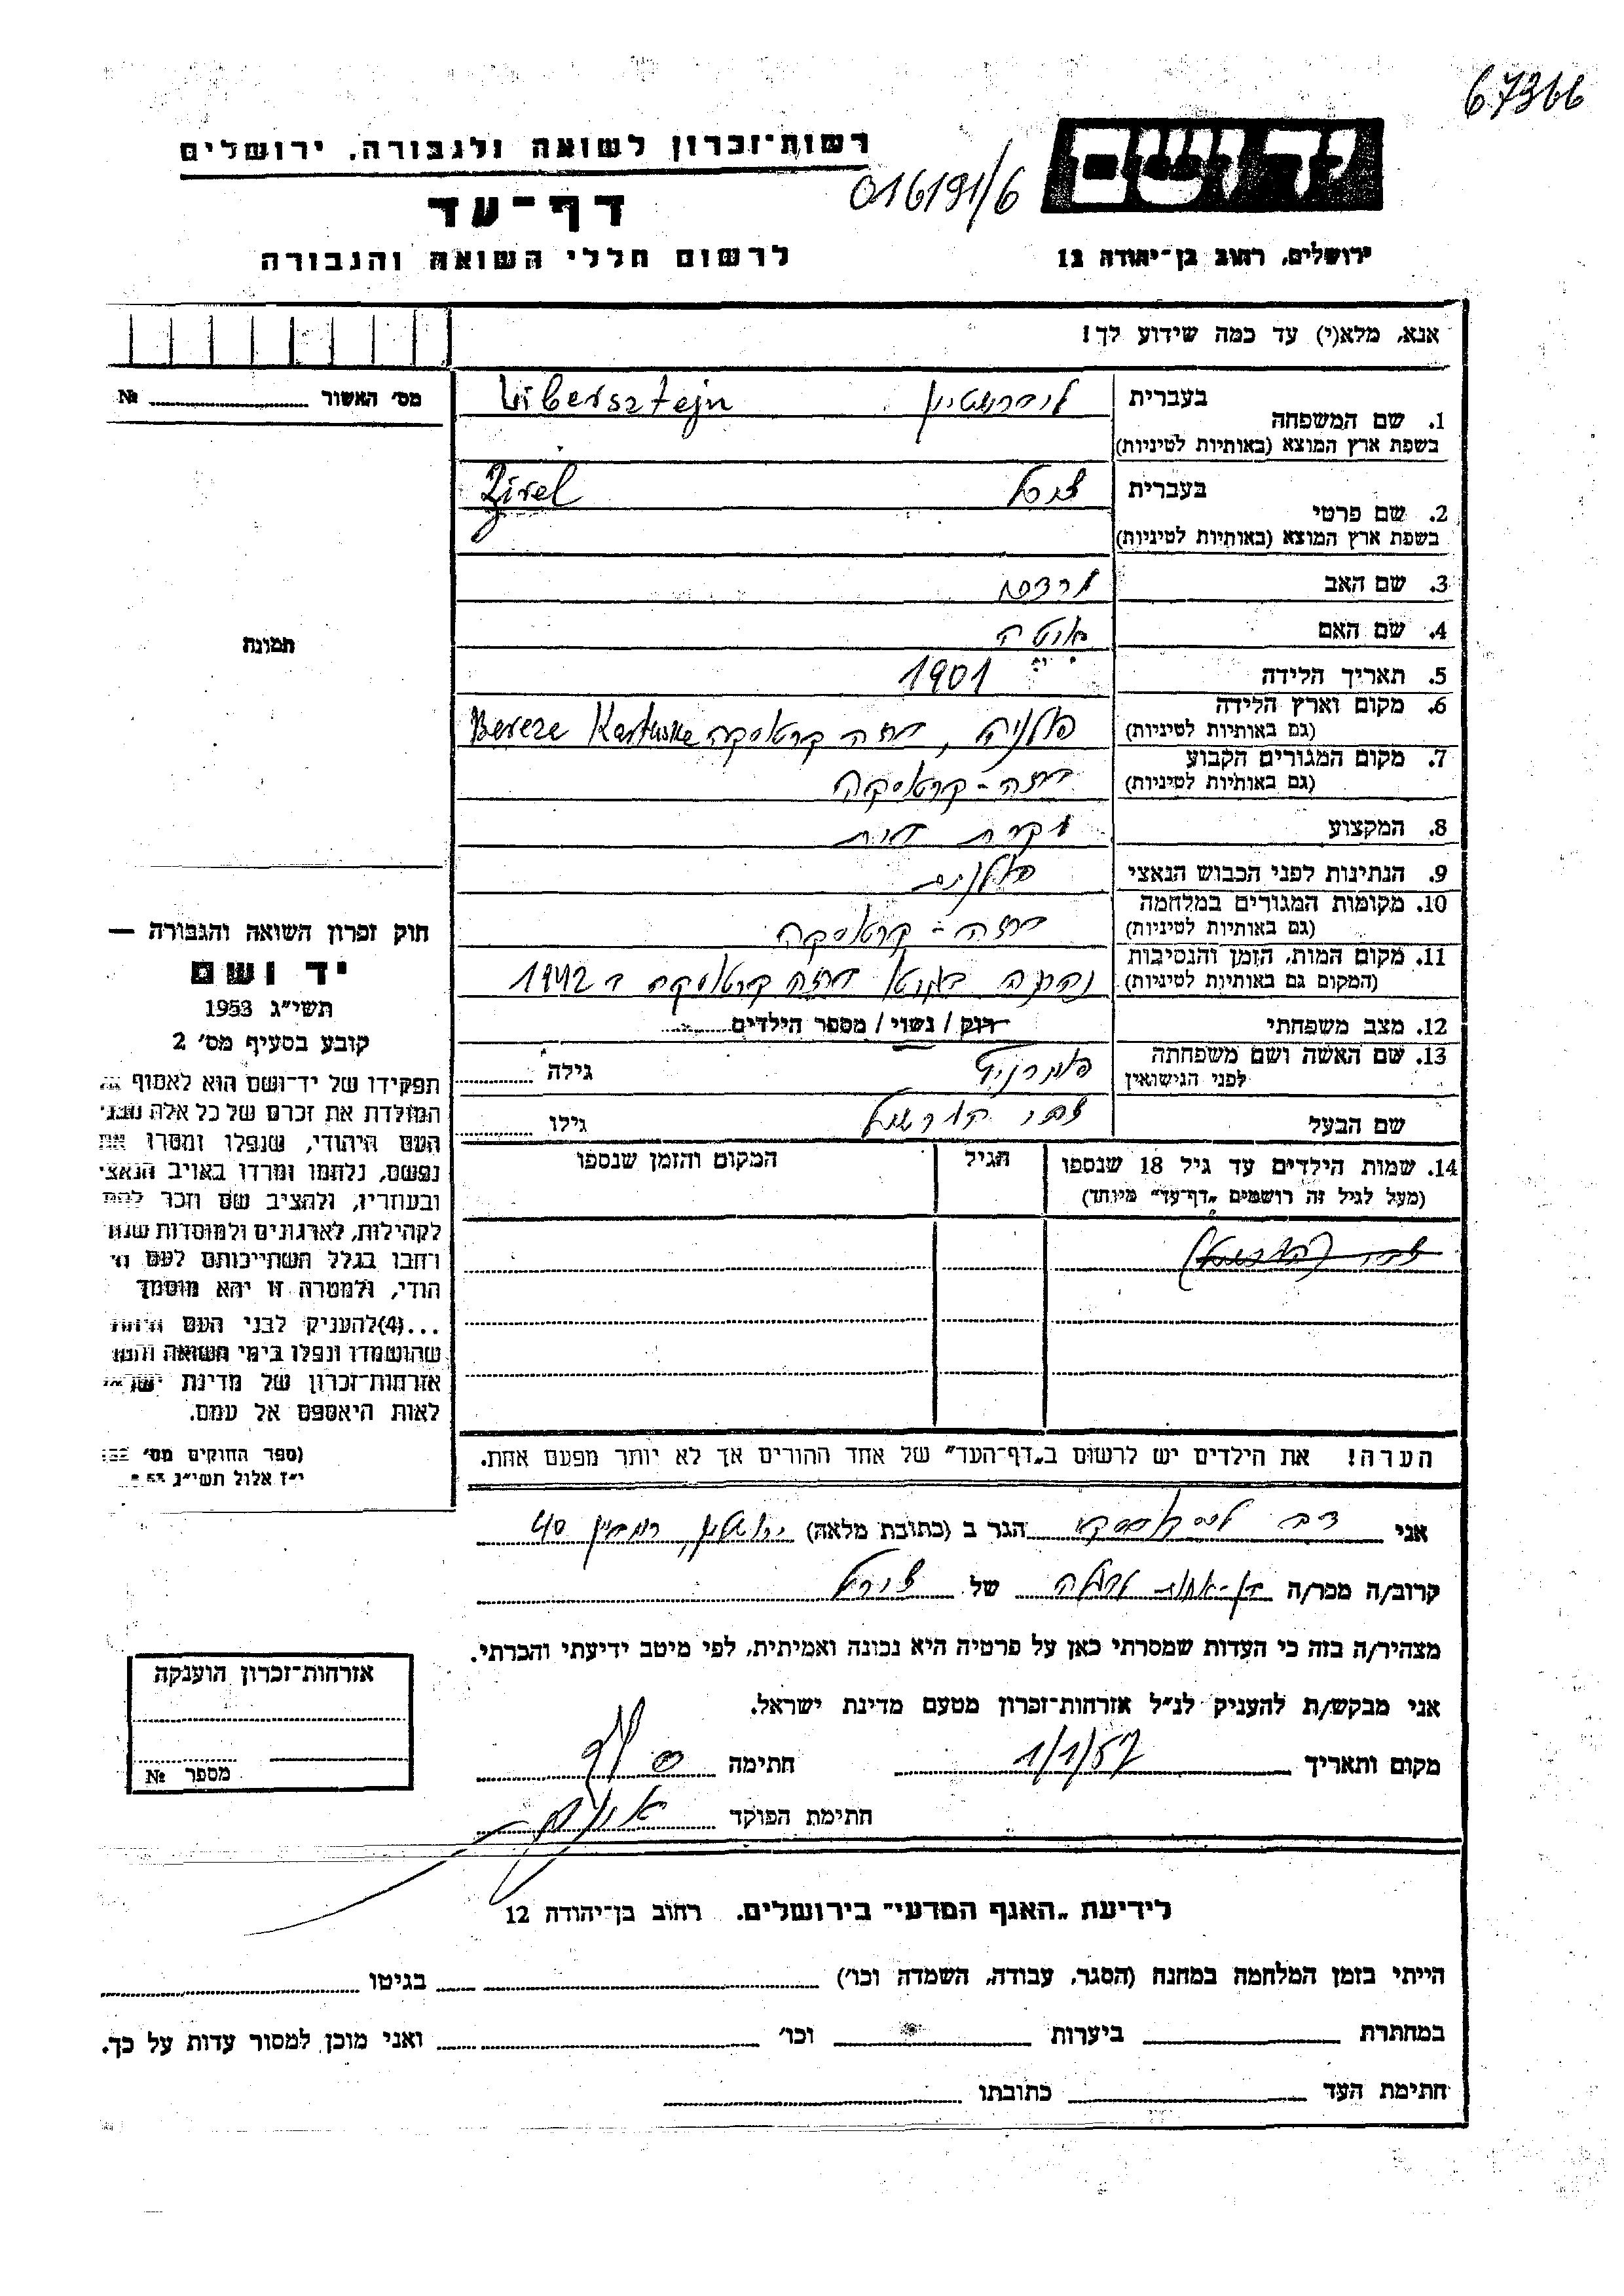 67366
יד ושם
רשות־זכרון לשואה ולגבורה, ירושלים
016191/6
דף־עד
ירושלים, רחוב בן־יהודה 12
לרשום חללי השואה והגבורה
אנא, מלא(י) עד כמה שידוע לך!
מס' האשור № 
1. שם המשפחה
בעברית ליברשטיין Libersztejn
בשפת ארץ המוצא (באותיות לטיניות)
2. שם פרטי
בעברית צירל Zirel
בשפת ארץ המוצא (באותיות לטיניות)
3. שם האב
4. שם האם
5. תאריך הלידה 1901
6. מקום וארץ הלידה
(גם באותיות לטיניות) פולניה, ברזה קרטוסקה Bereze Kartuske
7. מקום המגורים הקבוע
(גם באותיות לטיניות) ברזה - קרטוסקה
8. המקצוע עקרת בית
9. הנתינות לפני הכבוש הנאצי פולנית
10. מקומות המגורים במלחמה
(גם באותיות לטיניות) ברזה - קרטוסקה
11. מקום המות, הזמן והנסיבות
(המקום גם באותיות לטיניות) נהרגה בגטו ברזה קרטוסקה ב 1942
12. מצב משפחתי רוק / נשוי / מספר הילדים
13. שם האשה ושם משפחתה
לפני הנישואין גילה
שם הבעל גילו
14. שמות הילדים עד גיל 18 שנספו
(מעל לגיל זה רושמים „דף־עד" מיוחד)
הגיל
המקום והזמן שנספו
הערה! את הילדים יש לרשום ב„דף־העד" של אחד ההורים אך לא יותר מפעם אחת.
תמונה
חוק זכרון השואה והגבורה —
יד ושם
תשי"ג 1953
קובע בסעיף מס' 2
תפקידו של יד־ושם הוא לאסוף אל
המולדת את זכרם של כל אלה מבני
העם היהודי, שנפלו ומסרו את
נפשם, נלחמו ומרדו באויב הנאצי
ובעוזריו, ולהציב שם וזכר להם
לקהילות, לארגונים ולמוסדות שנח
רחבו בגלל השתייכותם לעם הי
הודי, ולמטרה זו יהא מוסמך
...(4)להעניק לבני העם היהודי
שהושמדו ונפלו בימי השואה והמרי
אזרחות־זכרון של מדינת ישראל
לאות היאספם אל עמם.
(ספר החוקים מס' 132
י"ז אלול תשי"ג
אני דב הגר ב (כתובת מלאה) ירושלים, רמב"ן 40
קרוב/ה מכר/ה בן-אחות של צירל
מצהיר/ה בזה כי העדות שמסרתי כאן על פרטיה היא נכונה ואמיתית, לפי מיטב ידיעתי והכרתי.
אני מבקש/ת להעניק לנ"ל אזרחות־זכרון מטעם מדינת ישראל.
מקום ותאריך 1/1/57 חתימה
חתימת הפוקד
אזרחות־זכרון הוענקה
מספר №
לידיעת „האגף המדעי" בירושלים. רחוב בן־יהודה 12
הייתי בזמן המלחמה במחנה (הסגר, עבודה, השמדה וכו') בגיטו
במחתרת ביערות וכו' ואני מוכן למסור עדות על כך.
חתימת העד כתובתו